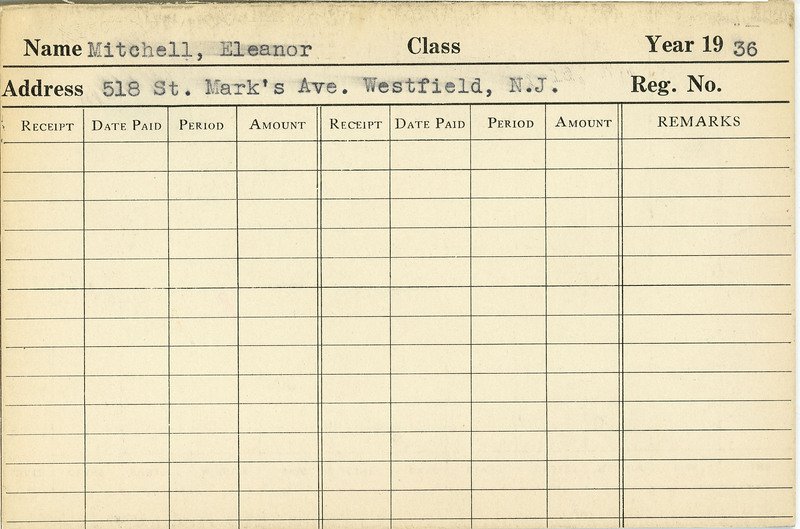 Name Mitchell, Eleanor Class Year 19 36
Address 518 St. Mark's Ave. Westfield, N.J. Reg. No.
RECEIPT DATE PAID PERIOD AMOUNT RECEIPT DATE PAID PERIOD AMOUNT REMARKS